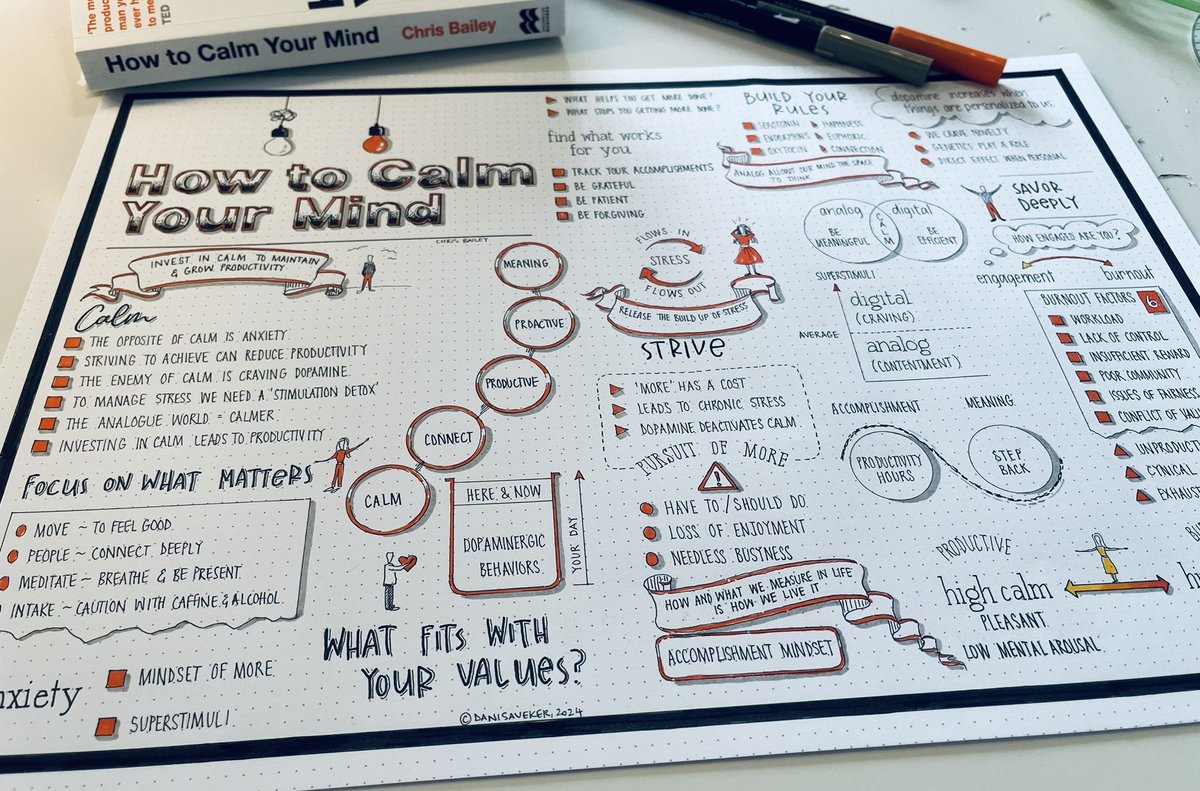 'The mo
produc
man yo
ever h
to me
TED
How to Calm Your Mind Chris Bailey
How to Calm
Your Mind
CHRIS BAILEY
INVEST IN CALM TO MAINTAIN
& GROW PRODUCTIVITY
Calm
THE OPPOSITE OF CALM IS ANXIETY
STRIVING TO ACHIEVE CAN REDUCE PRODUCTIVITY
THE ENEMY OF CALM IS CRAVING DOPAMINE
TO MANAGE STRESS WE NEED A 'STIMULATION DETOX'
THE 'ANALOGUE WORLD' = CALMER
INVESTING IN CALM LEADS TO PRODUCTIVITY
FOCUS ON WHAT MATTERS
MOVE ~ TO FEEL GOOD
PEOPLE ~ CONNECT DEEPLY
MEDITATE ~ BREATHE & BE PRESENT
INTAKE ~ CAUTION WITH CAFFINE & ALCOHOL
nxiety
MINDSET OF MORE
SUPERSTIMULI
MEANING
PROACTIVE
PRODUCTIVE
CONNECT
CALM
HERE & NOW
DOPAMINERGIC
BEHAVIORS
YOUR DAY
WHAT FITS WITH
YOUR VALUES?
© DANISAVEKER, 2024
WHAT HELPS YOU GET MORE DONE?
WHAT STOPS YOU GETTING MORE DONE?
find what works
for you
TRACK YOUR ACCOMPLISHMENTS
BE GRATEFUL
BE PATIENT
BE FORGIVING
FLOWS IN
STRESS
FLOWS OUT
RELEASE THE BUILD UP OF STRESS
STRIVE
'MORE' HAS A COST
LEADS TO CHRONIC STRESS
DOPAMINE DEACTIVATES CALM
PURSUIT OF MORE
HAVE TO / SHOULD DO
LOSS OF ENJOYMENT
NEEDLESS BUSYNESS
HOW AND WHAT WE MEASURE IN LIFE
IS HOW WE LIVE IT
ACCOMPLISHMENT MINDSET
BUILD YOUR
RULES
SEROTONIN HAPPINESS
ENDORPHINS EUPHORIC
OXYTOCIN CONNECTION
ANALOG ALLOWS OUR MIND THE SPACE
TO THINK
analog CALM digital
BE
MEANINGFUL
BE
EFFICIENT
SUPERSTIMULI
digital
(CRAVING)
AVERAGE
analog
(CONTENTMENT)
ACCOMPLISHMENT MEANING
PRODUCTIVITY
HOURS
STEP
BACK
PRODUCTIVE
high calm
PLEASANT
LOW MENTAL AROUSAL
dopamine increases when
things are personalized to us
WE CRAVE NOVELTY
GENETICS PLAY A ROLE
DIRECT EFFECT WHEN PERSONAL
SAVOR
DEEPLY
HOW ENGAGED ARE YOU?
engagement burnout
BURNOUT FACTORS 6
WORKLOAD
LACK OF CONTROL
INSUFFICIENT REWARD
POOR COMMUNITY
ISSUES OF FAIRNES
CONFLICT OF VAL
UNPRODUCT
CYNICAL
EXHAUST